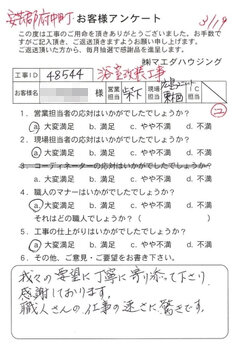 安芸郡府中町 お客様アンケート 3/19
この度は工事のご用命を頂きありがとうございました。お手数で
すがご記入頂き、ご返送頂きますようお願い申し上げます。
ご返送頂いた方から、毎月抽選で感謝品を進呈します。
㈱マエダハウジング
工事ID 48544 浴室改装工事
お客様名 営業担当 現場担当 IC
1. 営業担当者の応対はいかがでしたでしょうか？
a) 大変満足 b. 満足 c. やや不満 d. 不満
2. 現場担当者の応対はいかがでしたでしょうか？
a) 大変満足 b. 満足 c. やや不満 d. 不満
3. コーディネーターの応対はいかがでしたでしょうか？
a. 大変満足 b. 満足 c. やや不満 d. 不満
4. 職人のマナーはいかがでしたでしょうか？
a) 大変満足 b. 満足 c. やや不満 d. 不満
それはどの職人でしょうか？（ ）
5. 工事の仕上がりはいかがでしたでしょうか？
a) 大変満足 b. 満足 c. やや不満 d. 不満
6. その他、ご意見・ご要望をお書き下さい。
我々の要望に丁寧に寄り添って下さり、
感謝しております。
職人さんの仕事の速さに驚きです。